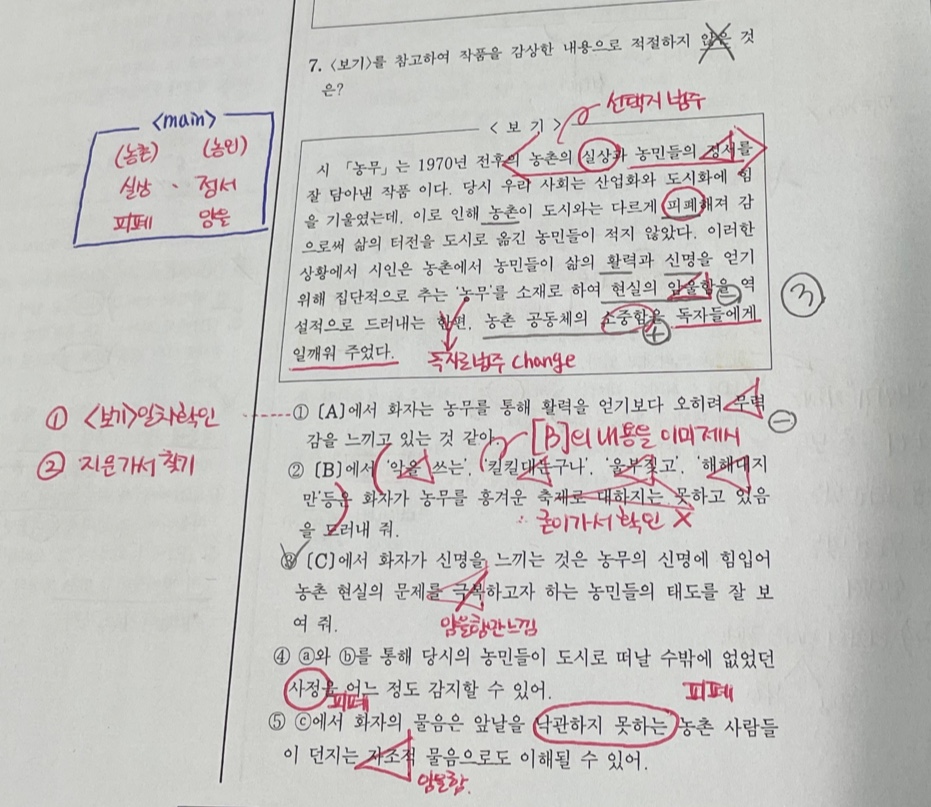 7. <보기>를 참고하여 작품을 감상한 내용으로 적절하지 않은 것
은?
선택지 범주
<보 기>
시 「농무」는 1970년 전후의 농촌의 실상과 농민들의 정서를
잘 담아낸 작품 이다. 당시 우리 사회는 산업화와 도시화에 힘
을 기울였는데, 이로 인해 농촌이 도시와는 다르게 피폐해져 감
으로써 삶의 터전을 도시로 옮긴 농민들이 적지 않았다. 이러한
상황에서 시인은 농촌에서 농민들이 삶의 활력과 신명을 얻기
위해 집단적으로 추는 '농무'를 소재로 하여 현실의 암울함을 역
설적으로 드러내는 한편, 농촌 공동체의 소중함을 독자들에게
일깨워 주었다.
독자로 범주 change
⊖
⊕
③
<main>
(농촌) (농민)
실상 · 정서
피폐 암울
① <보기>일차확인
② 지문가서 찾기
① [A]에서 화자는 농무를 통해 활력을 얻기보다 오히려 무력
감을 느끼고 있는 것 같아.
⊖
[B]의 내용을 이미 제시
② [B]에서 '악을 쓰는', '킬킬대는구나', '울부짖고', '해해대지
만'등은 화자가 농무를 흥겨운 축제로 대하지는 못하고 있음
을 드러내 줘.
∴ 굳이가서 확인 X
③ [C]에서 화자가 신명을 느끼는 것은 농무의 신명에 힘입어
농촌 현실의 문제를 극복하고자 하는 농민들의 태도를 잘 보
여 줘.
암울함만느낌
④ ⓐ와 ⓑ를 통해 당시의 농민들이 도시로 떠날 수밖에 없었던
사정을 어느 정도 감지할 수 있어.
피폐
피폐
⑤ ⓒ에서 화자의 물음은 앞날을 낙관하지 못하는 농촌 사람들
이 던지는 자조적 물음으로도 이해될 수 있어.
암울함.